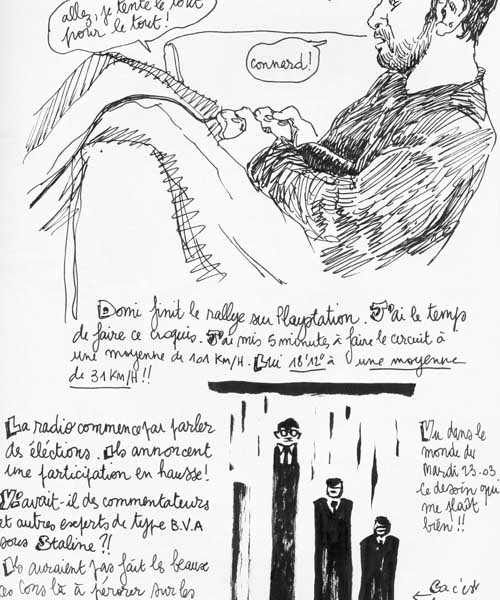 allez, je tente le tout
pour le tout!
connard!
Domi finit le rallye sur Playstation. J'ai le temps
de faire ce croquis. J'ai mis 5 minutes à faire le circuit à
une moyenne de 101 KM/H. Lui 18'12" à une moyenne
de 31 KM/H!!
La radio commence par parler
des éléctions. Ils annoncent
une participation en hausse!
Y avait-il des commentateurs
et autres experts de type B.V.A
sous Staline?!
Ils auraient pas fait les beaux
ces cons là à pérorer sur les
Vu dans le
monde du
Mardi 23.03
ce dessin qui
me plaît
bien!!
Ça c'est